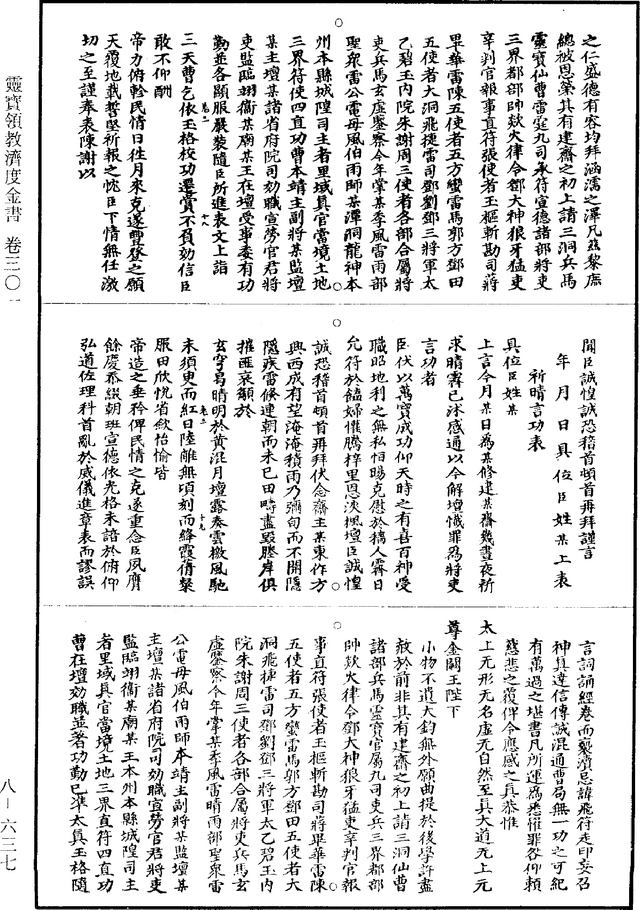 之仁盛德有容均拜涵濡之澤凡茲黎庶
總被恩榮其有建齋之初上請三洞兵馬
靈寶仙曹雷霆九司承符宣德諸部將吏
三界都部帥歘火律令鄧大神狼牙猛吏
辛判官報事直符張使者玉樞斬勘司蔣
畢華雷陳五使者五方蠻雷馬郭方鄧田
五使者大洞飛捷雷司鄧劉鄧三將軍太
乙碧玉內院朱謝周三使者各部合屬將
吏兵馬玄虛鑒察今年掌某季風雷雨部
聖衆雷公電母風伯雨師某潭洞龍神本
州本縣城隍司主者里域真官當境土地
三界符使四直功曹本靖主副將某監壇
某主壇某諸省府院司効職宣勞官君將
吏監臨翊衞某廟某王在壇受事委有功
勤並各顯服嚴裝隨臣所進表文上詣
三天曹乞依玉格校功遷賞不負効信臣
敢不仰酬
帝力俯輸民情日往月來克遂豐登之願
天覆地載誓堅祈報之忱臣下情無任激
切之至謹奉表陳謝以
聞臣誠惶誠恐稽首頓首再拜謹言
年月日具位臣姓某上表
祈晴言功表
具位臣姓某
上言今月某日為某修建某齋幾晝夜祈
求晴霽已沐感通以今解壇懺罪為將吏
言功者
臣伏以萬寶成功仰天時之有喜百神受
職昭地利之無私怕暘克慰於穡人霽日
允符於饁婦懽騰梓里恩浹楓壇臣誠惶
誠恐稽首頓首再拜伏念齋主某東作方
興西成有望淹淹積雨乃彌旬而不開隱
隱疾雷候連朝而未已田疇盡毀塍岸俱
摧匪衷籲於
玄穹曷晴明於黃混月壇露奏雲檄風馳
未須臾而紅日陞離無頃刻而絳霞倩粲
服田欣悅省斂怡愉皆
帝造之垂矜俾民情之克遂重念臣夙膺
餘慶忝綴朝班宣德依光格未諳於俯仰
弘道佐理科首亂於威儀進章表而謬誤
言詞誦經卷而褻瀆忌諱飛符走印妄召
神真達信傳誠混通曹局無一功之可紀
有萬過之堪書凡所運為悉懽罪咎仰賴
慈悲之覆俾令應感之真恭惟
太上无形无名虛无自然至真大道无上元
尊金闕王陛下
小物不遺大鈞無外願曲提於後學許盡
赦於前非其有建齋之初上請三洞仙曹
諸部兵馬靈寶官屬九司吏兵三界都部
帥歘火律令鄧大神狼牙猛吏辛判官報
事直符張使者玉樞斬勘司蔣畢華雷陳
五使者五方蠻雷馬郭方鄧田五使者大
洞飛捷雷司鄧劉鄧三將軍太乙碧玉內
院朱謝周三使者各部合屬將吏兵馬玄
虛鑒察今年掌某季風雷晴雨部聖衆雷
公電母風伯雨師本靖主副將某監壇某
主壇某諸省府院司効職宣勞官君將吏
監臨翊衞某廟某王本州本縣城隍司主
者里域真官當境土地三界直符四直功
曹在壇効職並著功勤已準太真玉格隨
靈寶領教濟度金書 卷三〇一
八－六三七